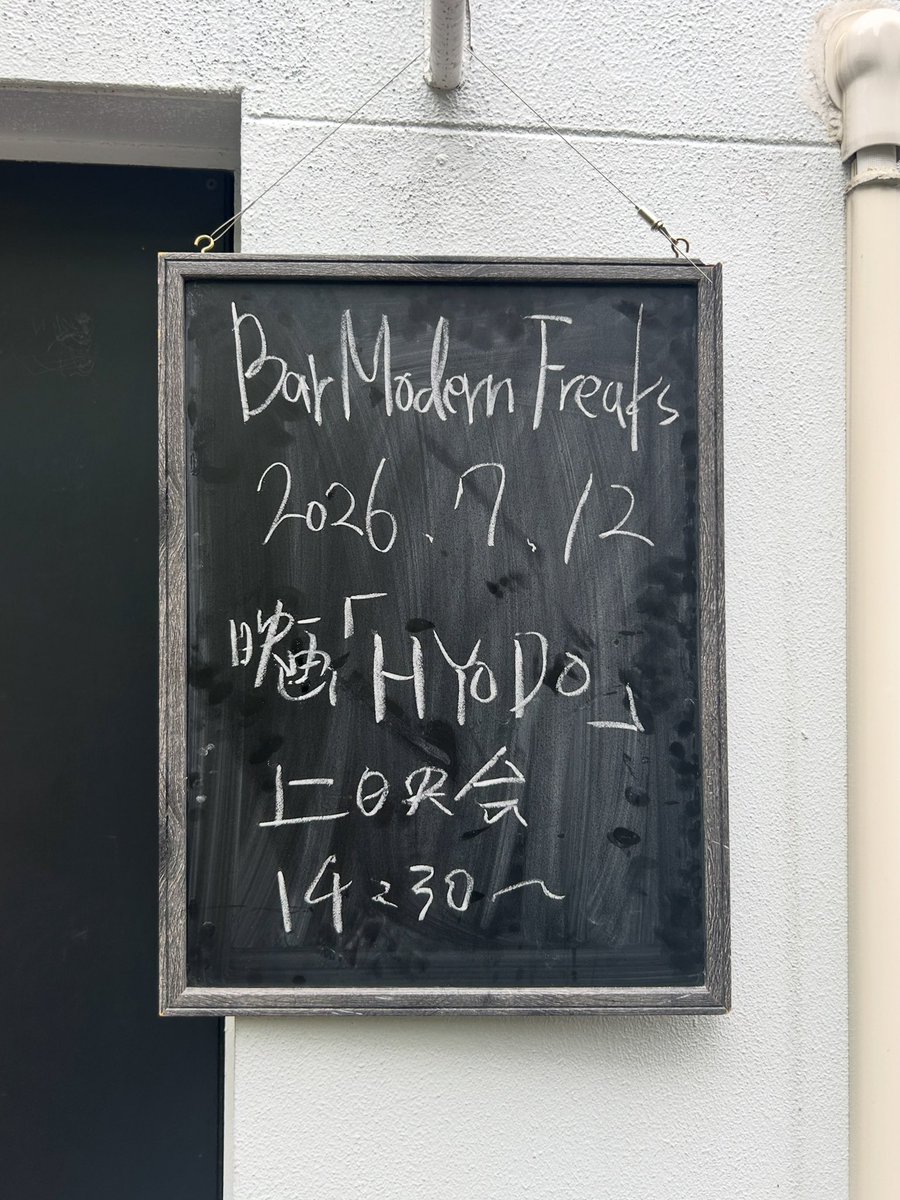 Bar Modern Freaks
2026.7.12
映画「HYODO」
上映会
14:30〜